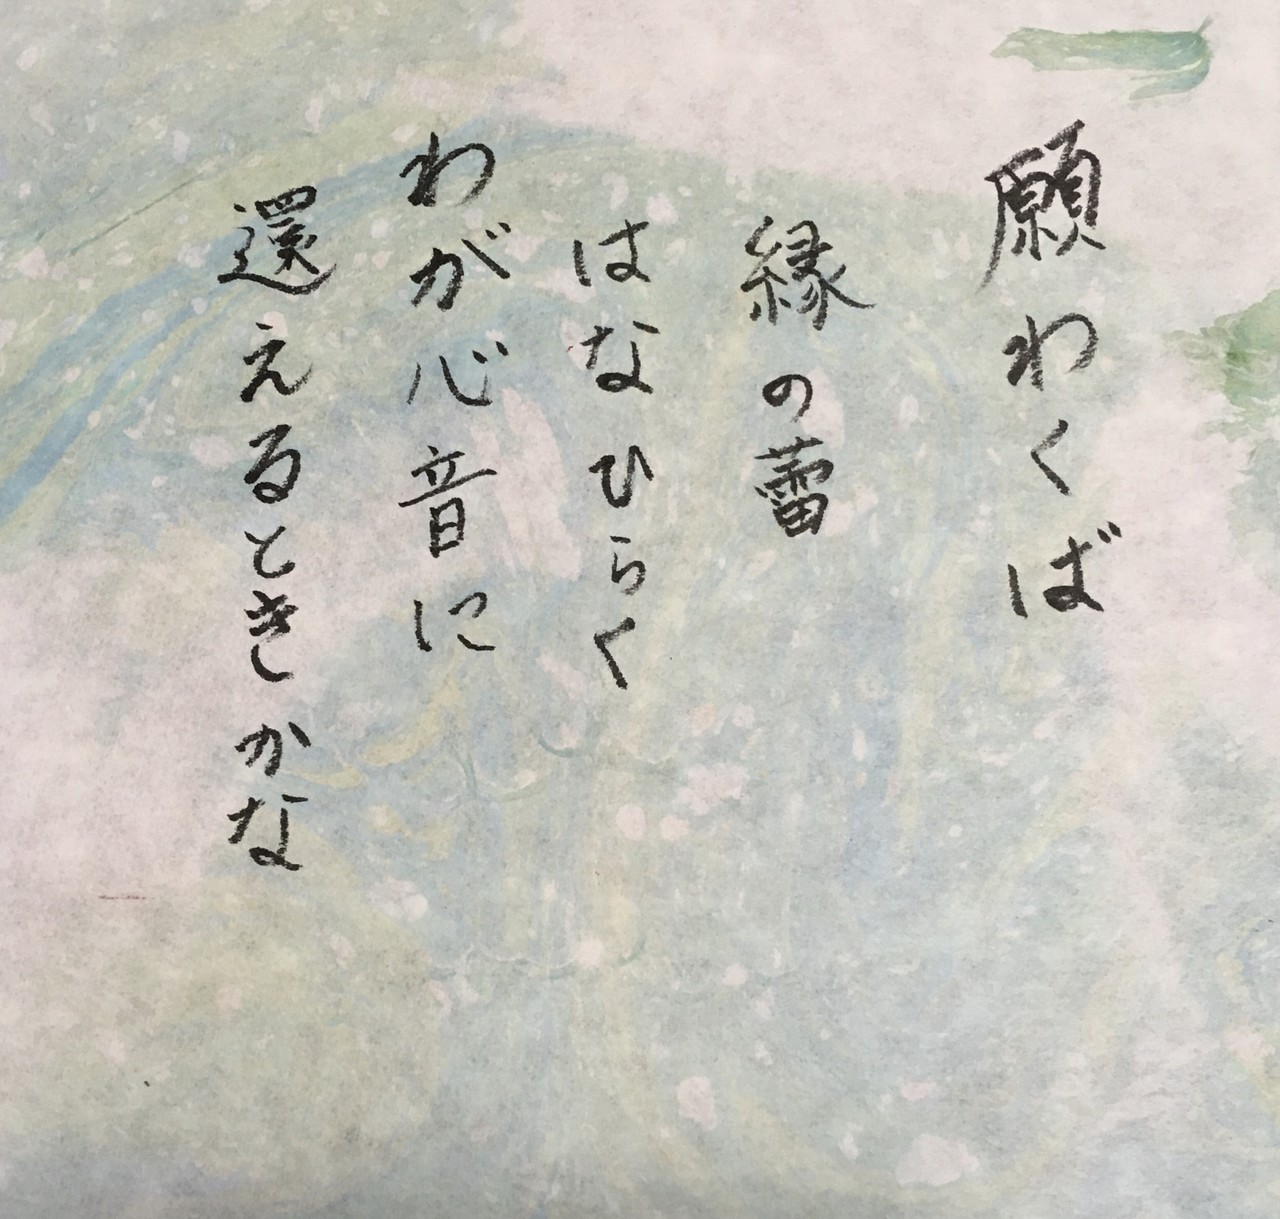 願わくば
縁の蕾
はなひらく
わが心音に
還えるときかな